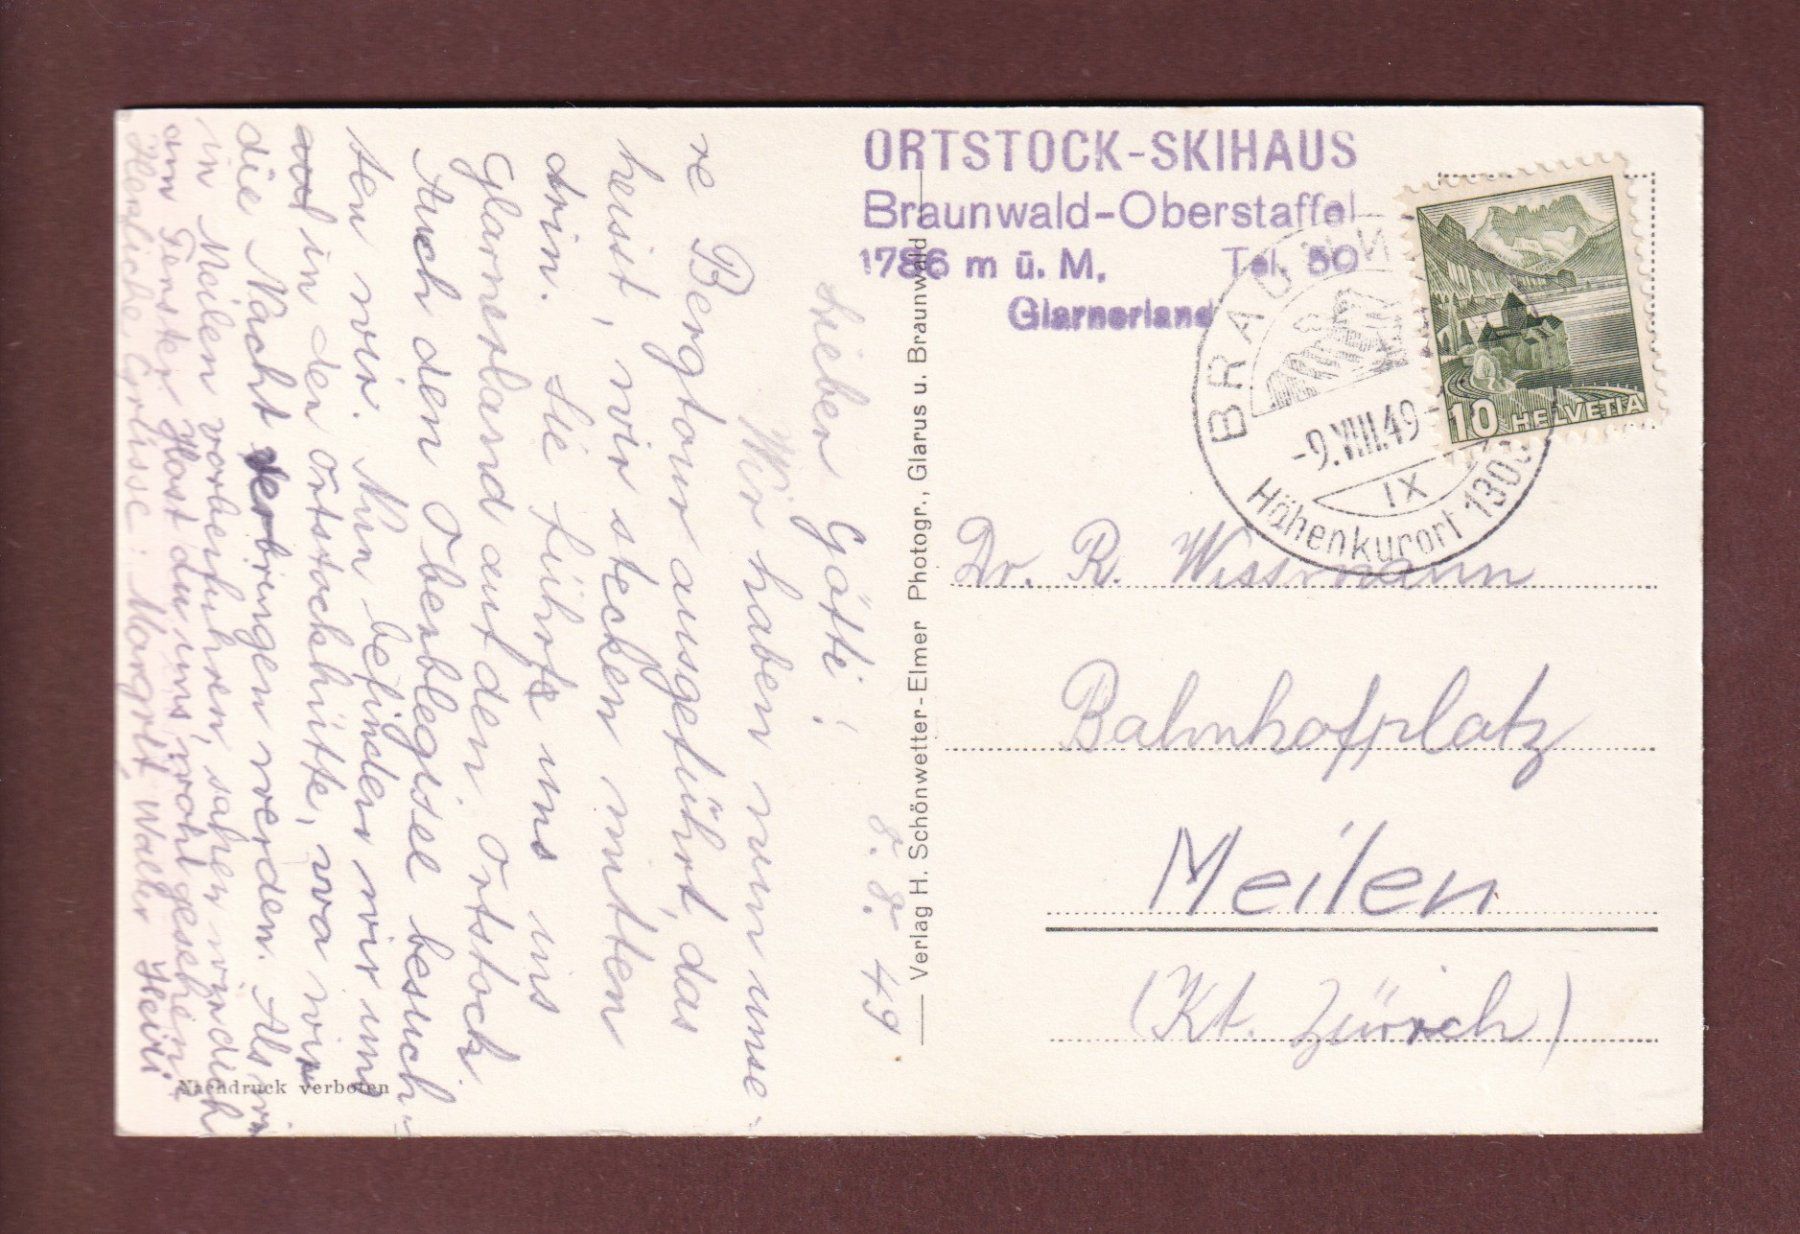 ORTSTOCK-SKIHAUS
Braunwald-Oberstaffel
1786 m ü. M. Tel. 50
Glarnerland
BRAUNW
-9.VIII.49-
IX
Höhenkurort 1300
10 HELVETIA
8. 8. 49
Lieber Götti!
Wir haben nun unse-
re Bergtour ausgeführt, das
heisst, wir stecken mitten
drin. Sie führte uns ins
Glarnerland auf den Ortstock.
Auch den Oberblegisee besuch-
ten wir. Nun befinden wir uns
in der Ortstockhütte, wo wir
die Nacht verbringen werden. Als wir
in Meilen vorbeifuhren, sahen wir dich
am Fenster. Hast du uns wohl gesehen?
Herzliche Grüsse: Margrit, Walter Heidi
Nachdruck verboten
Verlag H. Schönwetter-Elmer Photogr., Glarus u. Braunwald
Dr. R. Wissmann
Bahnhofplatz
Meilen
(Kt. Zürich)